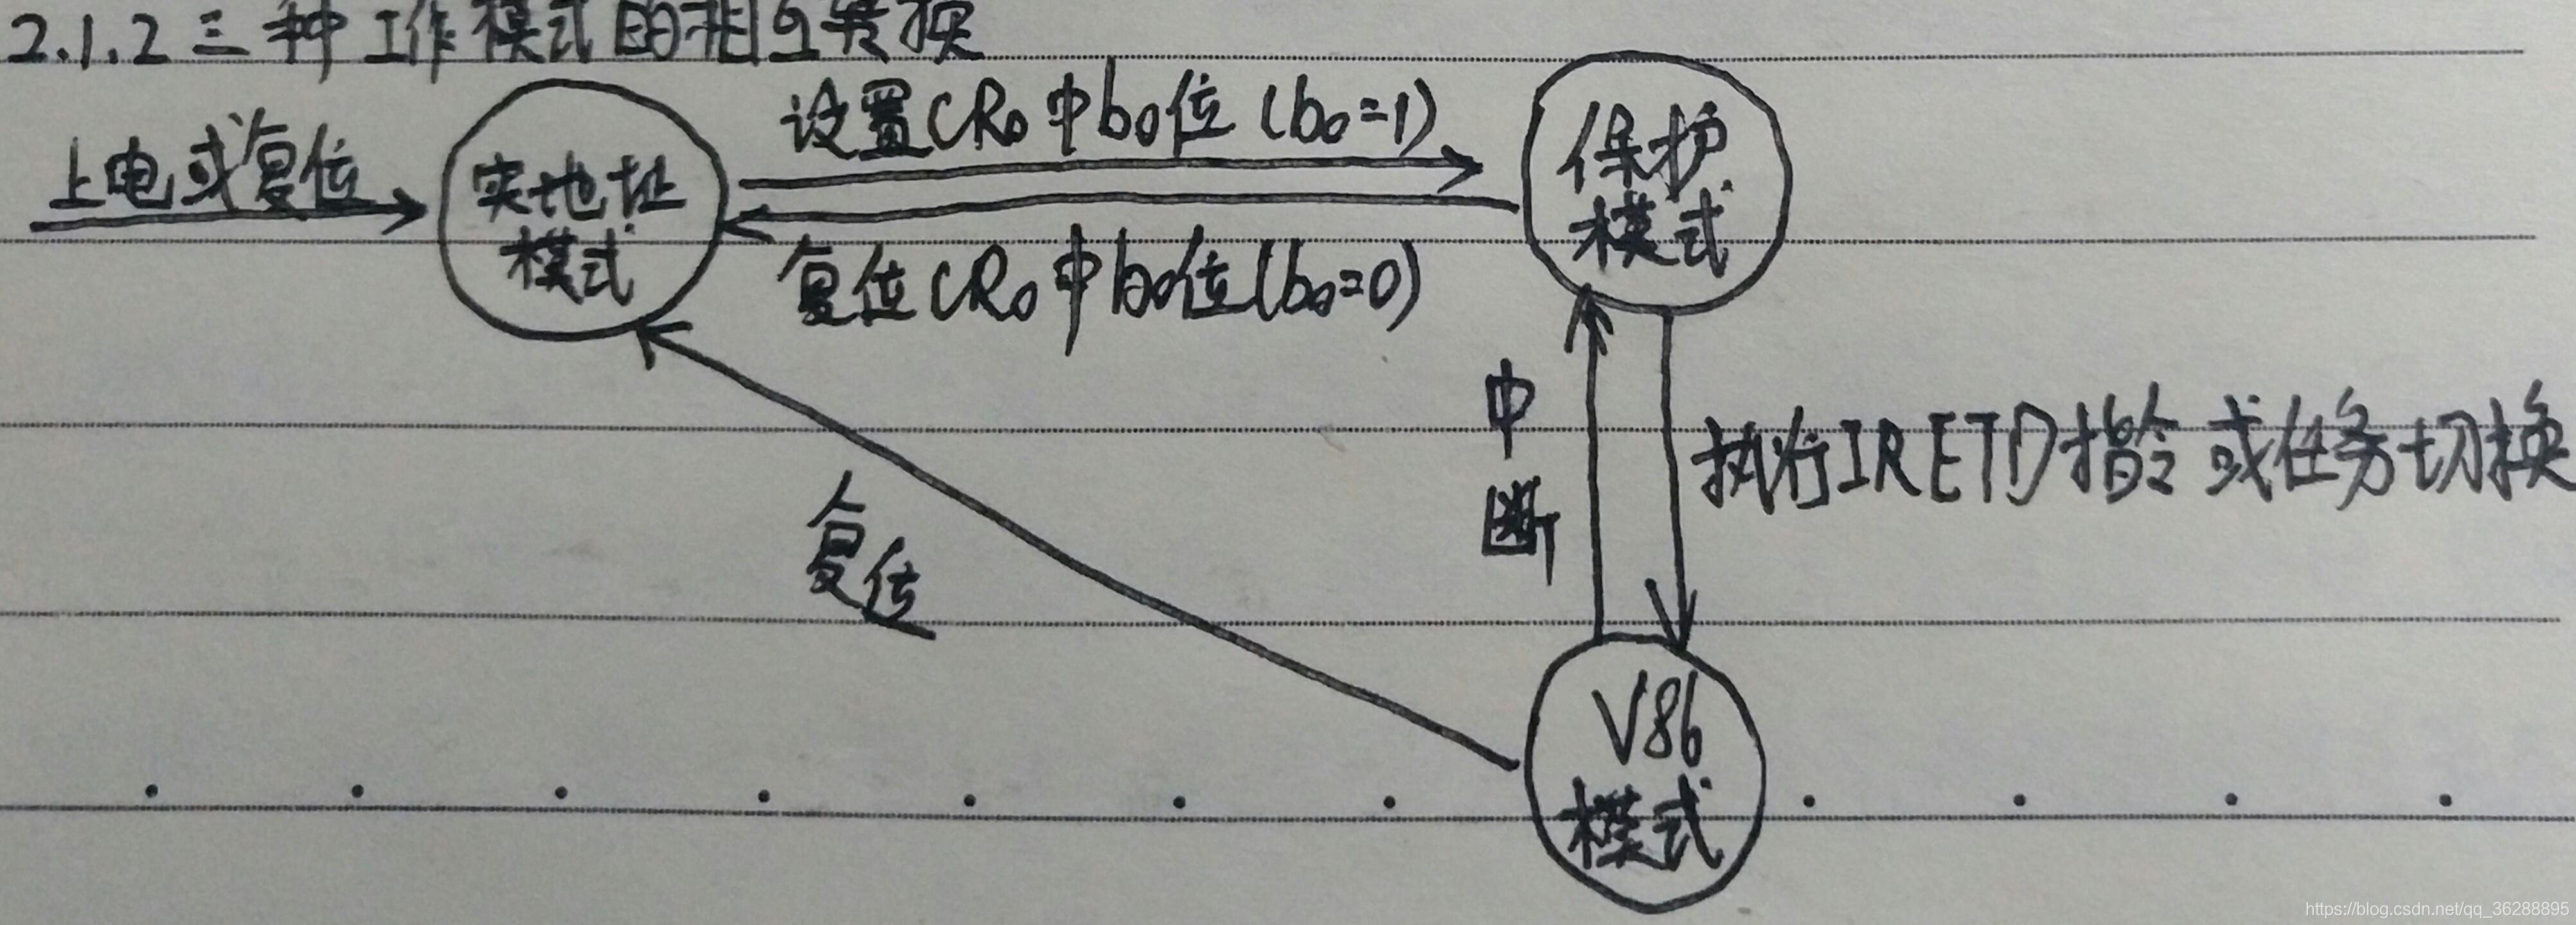 2.1.2 三种工作模式的相互转换
上电或复位
实地址
模式
设置CR0中b0位(b0=1)
复位CR0中b0位(b0=0)
保护
模式
中
断
执行IRETD指令或任务切换
复位
V86
模式
https://blog.csdn.net/qq_36288895